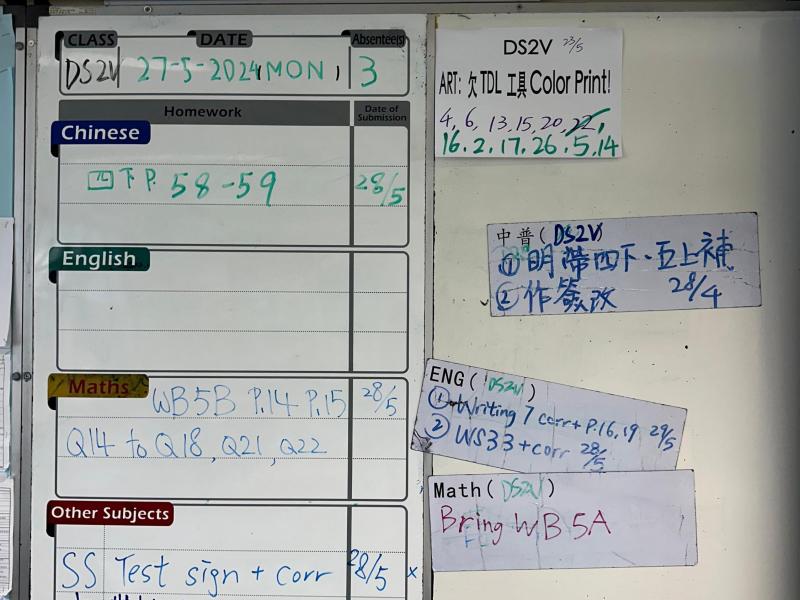 CLASS DATE Absentee(s)
DS2V 27-5-2024(MON) 3
Homework Date of Submission
Chinese
四下 P. 58-59 28/5
English
Maths
WB5B P.14 P.15 28/5
Q14 to Q18, Q21, Q22
Other Subjects
SS Test sign + corr 28/5 x
DS2V 23/5
ART: 欠 TDL 工具 Color Print!
4, 6, 13, 15, 20, 22,
16. 2. 17. 26. 5. 14
中普(DS2V)
① 明帶四下、五上補
② 作簽改 28/4
ENG (DS2V)
① Writing 7 corr + P.16, 19 29/5
② WS33 + corr 28/5
Math (DS2V)
Bring WB 5A